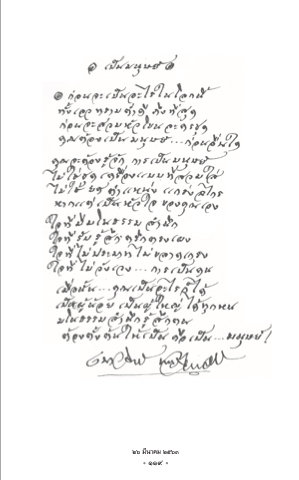 ๑ เป็นมนุษย์ ๑
๑ ก่อนจะเป็นอะไรในโลกนี้
ทั้งเลวทรามต่ำดี ทั้งที่สุด
ก่อนจะสวมหัวโขนละครชุด
คุณต้องเป็นมนุษย์...ก่อนอื่นใด
คุณจะต้องรู้จัก การเป็นมนุษย์
ไม่ใช่ชุด เครื่องแบบที่สวมใส่
ไม่ใช่ยศ ตำแหน่ง แกร่งไกร
หากแต่เป็นหัวใจ ของคุณเอง
ใจที่มีมโนธรรม สำนึก
ใจที่รับรู้สึกตรึกตรงเผง
ใจที่ไม่ประมาทไม่ขลาดเกรง
ใจที่ไม่วังเวง...การเป็นคน
เมื่อนั้น...คุณเป็นอะไรก็ได้
เป็นผู้น้อย เป็นผู้ใหญ่ ได้ทุกหน
มโนธรรมสำนึกรู้สึกตน
ต้องตั้งต้นให้เป็น คือเป็น...มนุษย์!
๒๖ มีนาคม ๒๕๓๓
- ๑๑๙ -